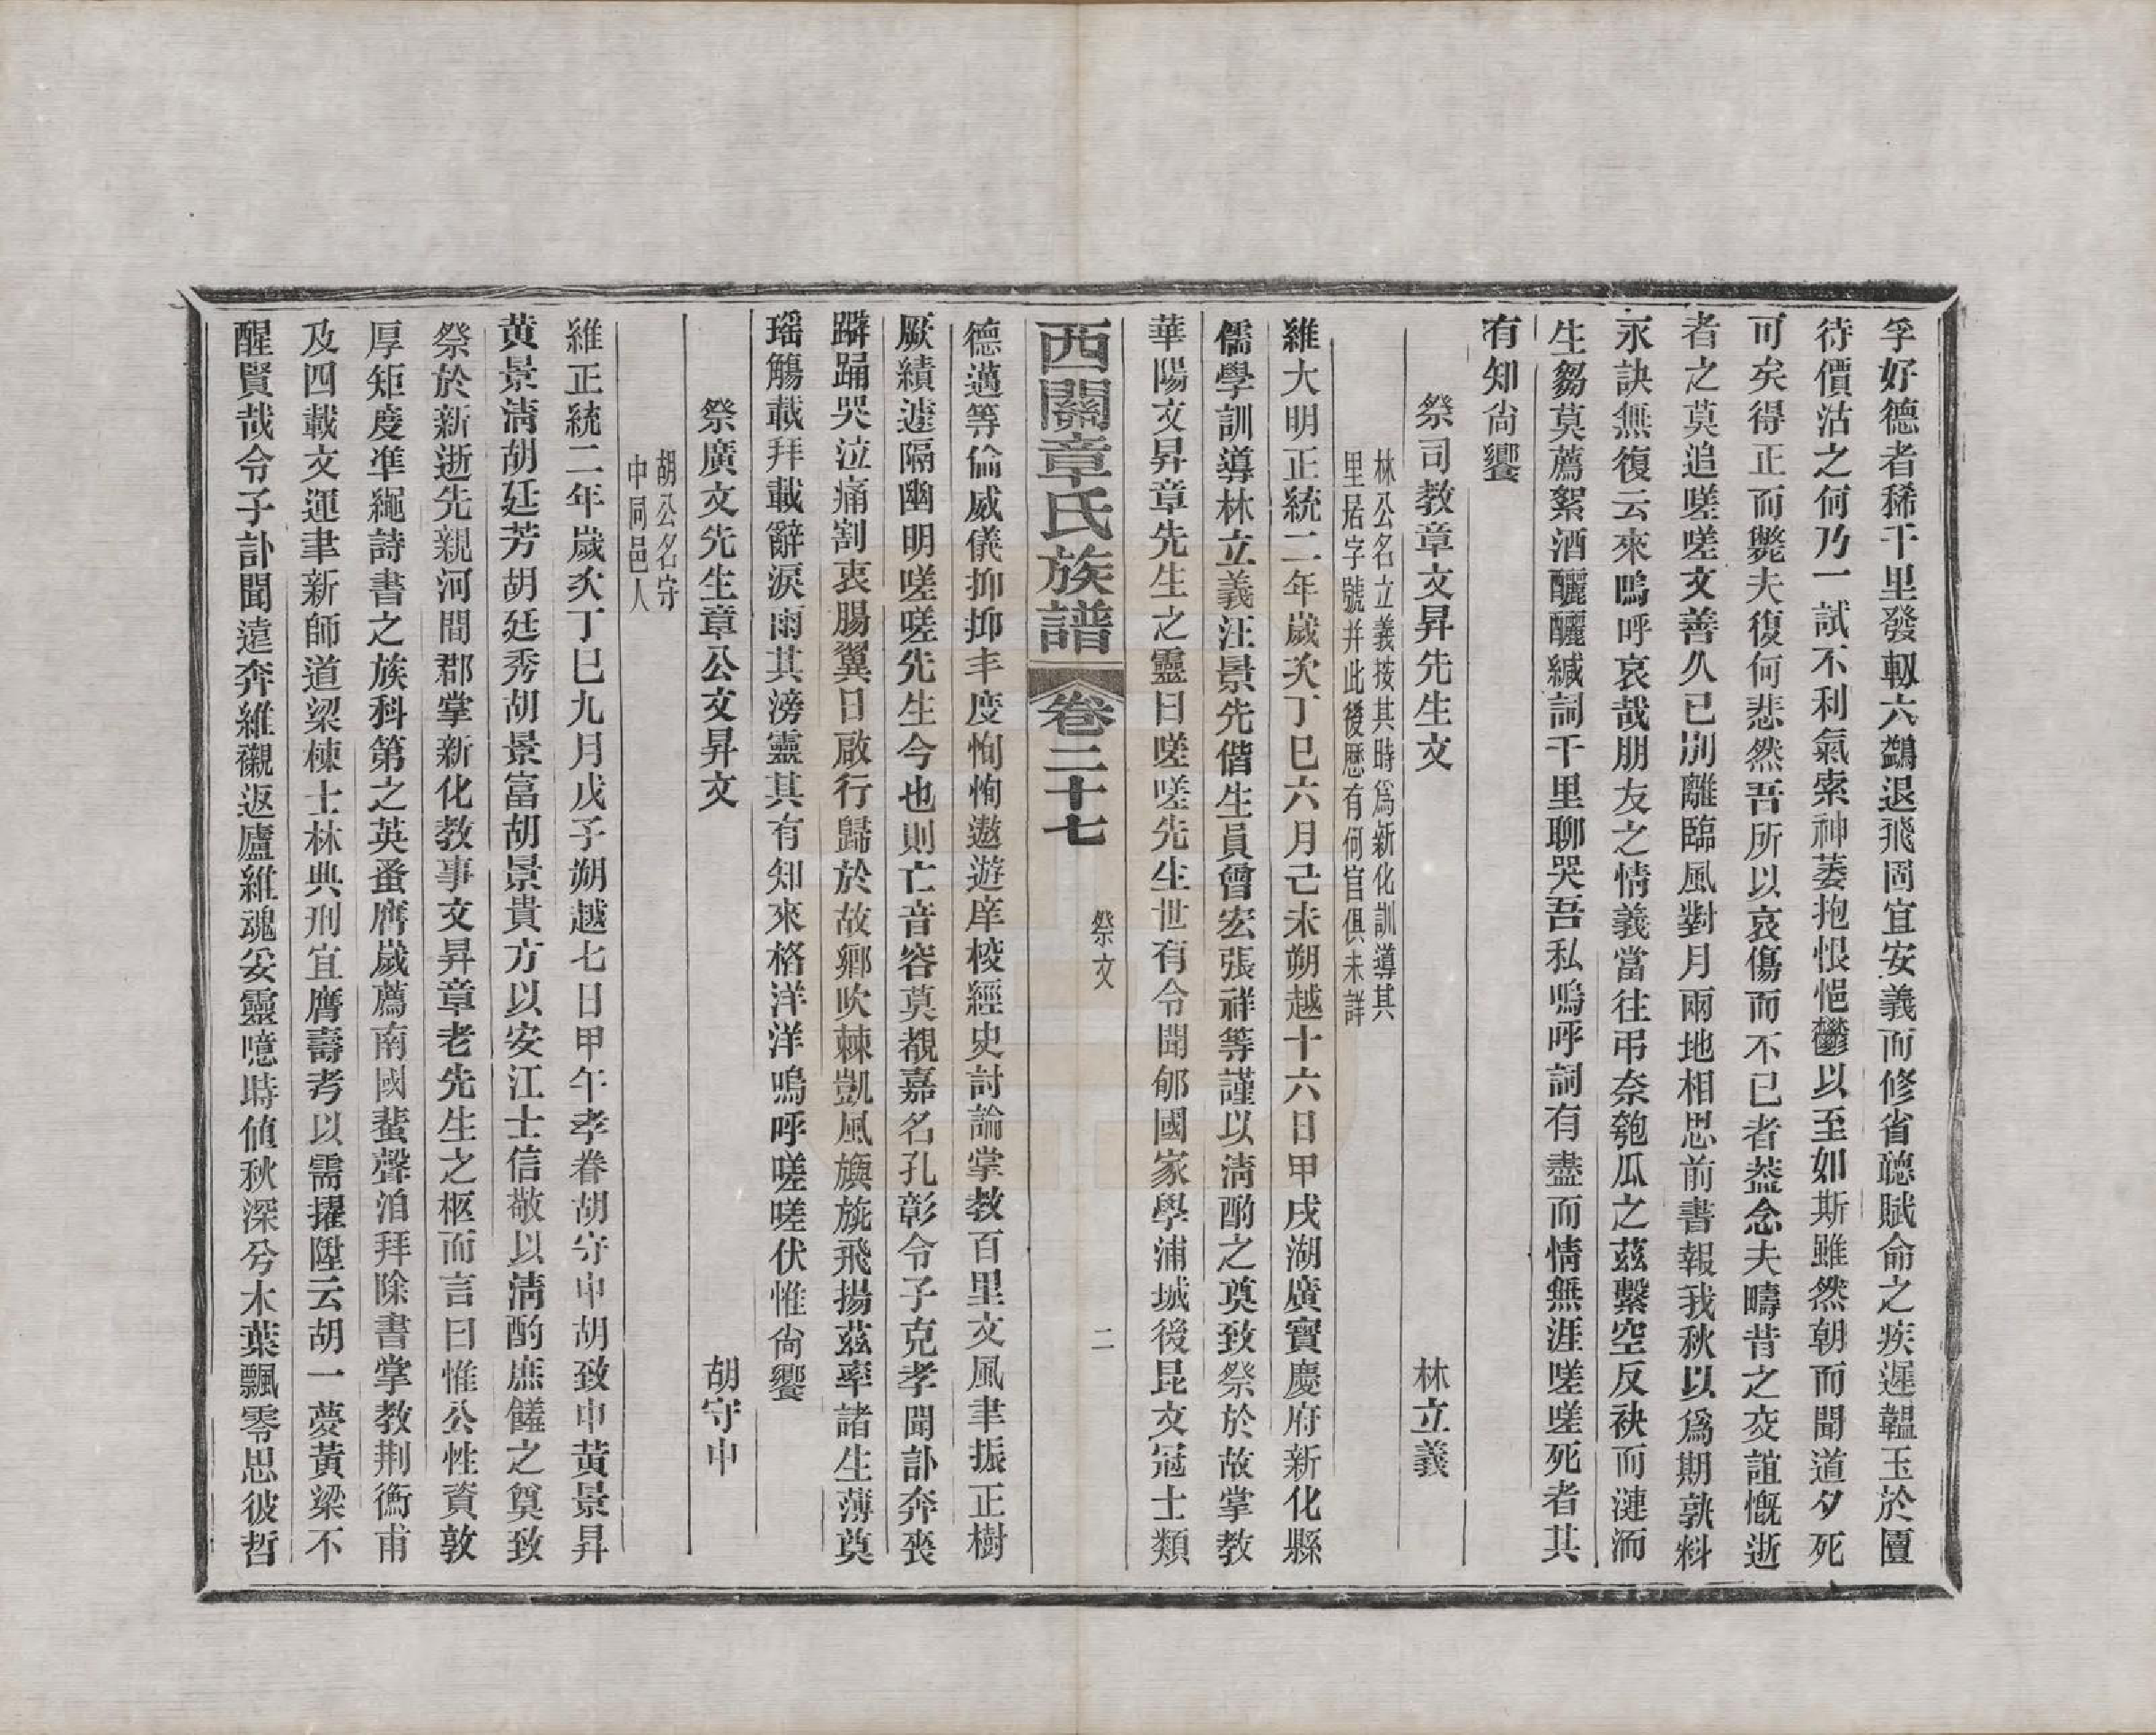 孚好德者稀千里發軔六鷁退飛固宜安義而修省聽賦命之疾遲韞玉於匵
待價沽之何乃一試不利氣索神萎抱恨悒鬱以至如斯雖然朝而聞道夕死
可矣得正而斃夫復何悲然吾所以哀傷而不已者葢念夫疇昔之交誼慨逝
者之莫追嗟嗟文善久已別離臨風對月兩地相思前書報我秋以爲期孰料
永訣無復云來嗚呼哀哉朋友之情義當往弔奈匏瓜之茲繫空反袂而漣洏
生芻莫薦絮酒釃釃緘詞千里聊哭吾私嗚呼詞有盡而情無涯嗟嗟死者其
有知尙饗
祭司教章文昇先生文　林立義
林公名立義按其時爲新化訓導其
里居字號并此後歷有何官俱未詳
維大明正統二年歲次丁巳六月己未朔越十六日甲戌湖廣寶慶府新化縣
儒學訓導林立義汪景先偕生員曾宏張祥等謹以淸酌之奠致祭於故掌教
華陽文昇章先生之靈曰嗟嗟先生世有令聞郇國家學浦城後昆文冠士類
西關章氏族譜　卷二十七　祭文　二
德邁等倫威儀抑抑丰度恂恂遨遊庠校經史討論掌教百里文風聿振正樹
厥績遽隔幽明嗟嗟先生今也則亡音容莫覩嘉名孔彰令子克孝聞訃奔喪
躃踊哭泣痛割衷腸翼日啟行歸於故鄉吹棘凱風旟旐飛揚茲率諸生薄奠
瑶觴載拜載辭淚雨其滂靈其有知來格洋洋嗚呼嗟嗟伏惟尙饗
祭廣文先生章公文昇文　胡守中
胡公名守
中同邑人
維正統二年歲次丁巳九月戊子朔越七日甲午孝眷胡守中胡致中黃景昇
黃景淸胡廷芳胡廷秀胡景富胡景貴方以安江士信敬以淸酌庶饈之奠致
祭於新逝先親河間郡掌新化教事文昇章老先生之柩而言曰惟公性資敦
厚矩度準繩詩書之族科第之英蚤膺歲薦南國蜚聲洎拜除書掌教荆衡甫
及四載文運聿新師道梁棟士林典刑宜膺壽考以需擢陞云胡一夢黃粱不
醒賢哉令子訃聞遠奔維櫬返廬維魂妥靈噫時値秋深兮木葉飄零思彼哲